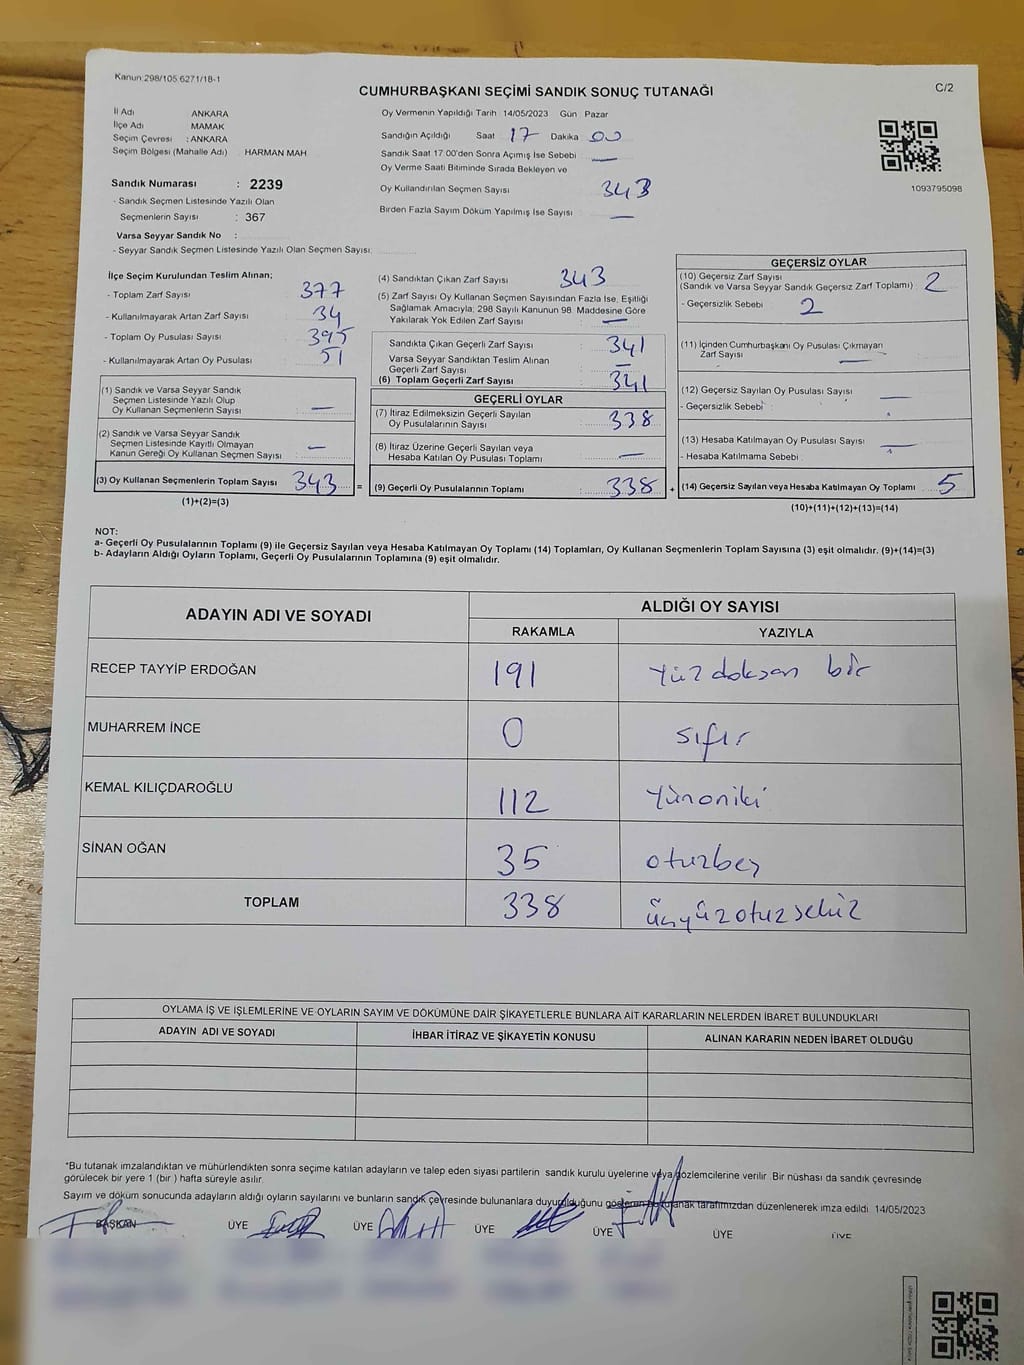 Kanun:298/105 6271/18-1
CUMHURBAŞKANI SEÇİMİ SANDIK SONUÇ TUTANAĞI
C/2
İl Adı ANKARA
İlçe Adı MAMAK
Seçim Çevresi : ANKARA
Seçim Bölgesi (Mahalle Adı) HARMAN MAH
Sandık Numarası : 2239
- Sandık Seçmen Listesinde Yazılı Olan
Seçmenlerin Sayısı : 367
Varsa Seyyar Sandık No :
- Seyyar Sandık Seçmen Listesinde Yazılı Olan Seçmen Sayısı:
Oy Vermenin Yapıldığı Tarih 14/05/2023 Gün Pazar
Sandığın Açıldığı Saat 17 Dakika 00
Sandık Saat 17:00'den Sonra Açımış İse Sebebi —
Oy Verme Saati Bitiminde Sırada Bekleyen ve
Oy Kullandırılan Seçmen Sayısı 343
Birden Fazla Sayım Döküm Yapılmış İse Sayısı —
1093795098
İlçe Seçim Kurulundan Teslim Alınan;
- Toplam Zarf Sayısı 377
- Kullanılmayarak Artan Zarf Sayısı 34
- Toplam Oy Pusulası Sayısı 395
- Kullanılmayarak Artan Oy Pusulası 51
(1) Sandık ve Varsa Seyyar Sandık
Seçmen Listesinde Yazılı Olup
Oy Kullanan Seçmenlerin Sayısı —
(2) Sandık ve Varsa Seyyar Sandık
Seçmen Listesinde Kayıtlı Olmayan
Kanun Gereği Oy Kullanan Seçmen Sayısı : —
(3) Oy Kullanan Seçmenlerin Toplam Sayısı 343 =
(1)+(2)=(3)
(4) Sandıktan Çıkan Zarf Sayısı 343
(5) Zarf Sayısı Oy Kullanan Seçmen Sayısından Fazla İse, Eşitliği
Sağlamak Amacıyla; 298 Sayılı Kanunun 98. Maddesine Göre
Yakılarak Yok Edilen Zarf Sayısı —
Sandıkta Çıkan Geçerli Zarf Sayısı 341
Varsa Seyyar Sandıktan Teslim Alınan
Geçerli Zarf Sayısı —
(6) Toplam Geçerli Zarf Sayısı 341
GEÇERLİ OYLAR
(7) İtiraz Edilmeksizin Geçerli Sayılan
Oy Pusulalarının Sayısı : 338
(8) İtiraz Üzerine Geçerli Sayılan veya
Hesaba Katılan Oy Pusulası Toplamı : —
(9) Geçerli Oy Pusulalarının Toplamı : 338 +
GEÇERSİZ OYLAR
(10) Geçersiz Zarf Sayısı
(Sandık ve Varsa Seyyar Sandık Geçersiz Zarf Toplamı) : 2
- Geçersizlik Sebebi 2
(11) İçinden Cumhurbaşkanı Oy Pusulası Çıkmayan
Zarf Sayısı —
(12) Geçersiz Sayılan Oy Pusulası Sayısı —
- Geçersizlik Sebebi
(13) Hesaba Katılmayan Oy Pusulası Sayısı —
- Hesaba Katılmama Sebebi
(14) Geçersiz Sayılan veya Hesaba Katılmayan Oy Toplamı 5
(10)+(11)+(12)+(13)=(14)
NOT:
a- Geçerli Oy Pusulalarının Toplamı (9) ile Geçersiz Sayılan veya Hesaba Katılmayan Oy Toplamı (14) Toplamları, Oy Kullanan Seçmenlerin Toplam Sayısına (3) eşit olmalıdır. (9)+(14)=(3)
b- Adayların Aldığı Oyların Toplamı, Geçerli Oy Pusulalarının Toplamına (9) eşit olmalıdır.
ADAYIN ADI VE SOYADI
ALDIĞI OY SAYISI
RAKAMLA YAZIYLA
RECEP TAYYİP ERDOĞAN 191 yüzdoksan bir
MUHARREM İNCE 0 sıfır
KEMAL KILIÇDAROĞLU 112 yüzoniki
SİNAN OĞAN 35 otuzbeş
TOPLAM 338 üçyüzotuzsekiz
OYLAMA İŞ VE İŞLEMLERİNE VE OYLARIN SAYIM VE DÖKÜMÜNE DAİR ŞİKAYETLERLE BUNLARA AİT KARARLARIN NELERDEN İBARET BULUNDUKLARI
ADAYIN ADI VE SOYADI İHBAR İTİRAZ VE ŞİKAYETİN KONUSU ALINAN KARARIN NEDEN İBARET OLDUĞU
*Bu tutanak imzalandıktan ve mühürlendikten sonra seçime katılan adayların ve talep eden siyasi partilerin sandık kurulu üyelerine veya gözlemcilerine verilir. Bir nüshası da sandık çevresinde
görülecek bir yere 1 (bir ) hafta süreyle asılır.
Sayım ve döküm sonucunda adayların aldığı oyların sayılarını ve bunların sandık çevresinde bulunanlara duyurulduğunu gösteren bu tutanak tarafımızdan düzenlenerek imza edildi. 14/05/2023
BAŞKAN ÜYE ÜYE ÜYE ÜYE ÜYE ÜYE